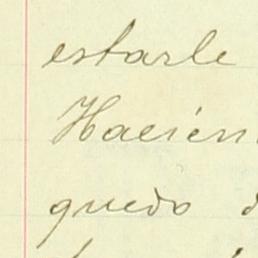 estarle
Hacién
quedo